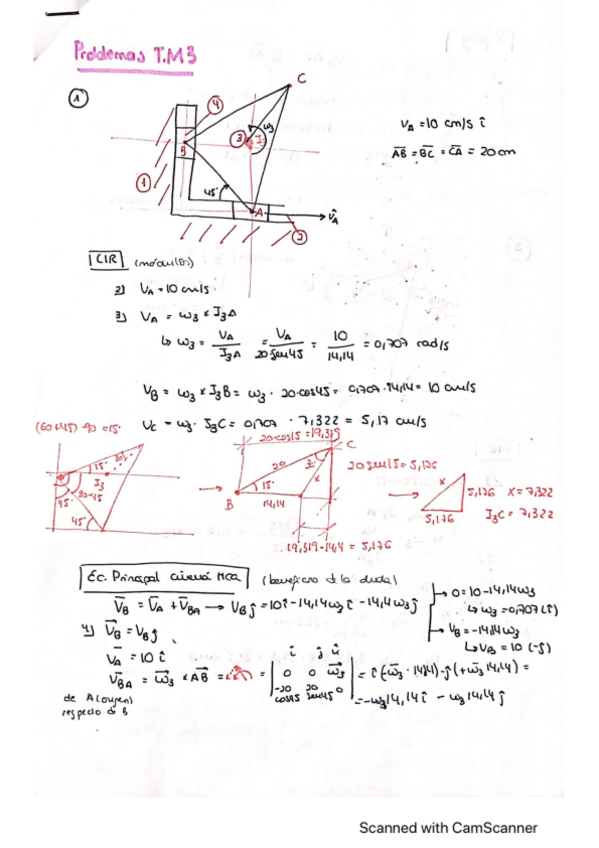 Problemas T.M3
1
C
4
ω3
3
I3
B
1
45°
A
V̂A
2
VA = 10 cm/s î
AB = BC = CA = 20 cm
CIR (módulos)
2) VA = 10 cm/s
3) VA = ω3 × I3A
↳ ω3 = VA / I3A = VA / 20 sen45 = 10 / 14,14 = 0,707 rad/s
VB = ω3 × I3B = ω3 · 20·cos45 = 0,707·14,14 = 10 cm/s
VC = ω3 · I3C = 0,707 · 7,322 = 5,17 cm/s
(60+45)-90 = 15°
15°
I3
45°
45°
20cos15 = 19,319
C
20
x
15°
B
14,14
20 sen15 = 5,176
19,319-14,4 = 5,176
x
5,176
5,176
x = 7,322
I3C = 7,322
Ec. Principal cinemática (beneficio de la duda)
V̄B = V̄A + V̄BA → VB ĵ = 10î - 14,14ω3 î - 14,4ω3 ĵ
→ 0 = 10 - 14,14ω3
↳ ω3 = 0,707 (î)
→ VB = -14,14ω3
↳ VB = 10 (-ĵ)
4) V̄B = VB ĵ
V̄A = 10 î
V̄BA = ω̄3 × AB = = | î ĵ û | 0 0 ω̄3 | -20 cos45 20 sen45 0 | = î(-ω̄3·14,14) - ĵ(+ω3 14,14) =
= -ω3 14,14 î - ω3 14,14 ĵ
de A (origen)
respecto a B
Scanned with CamScanner